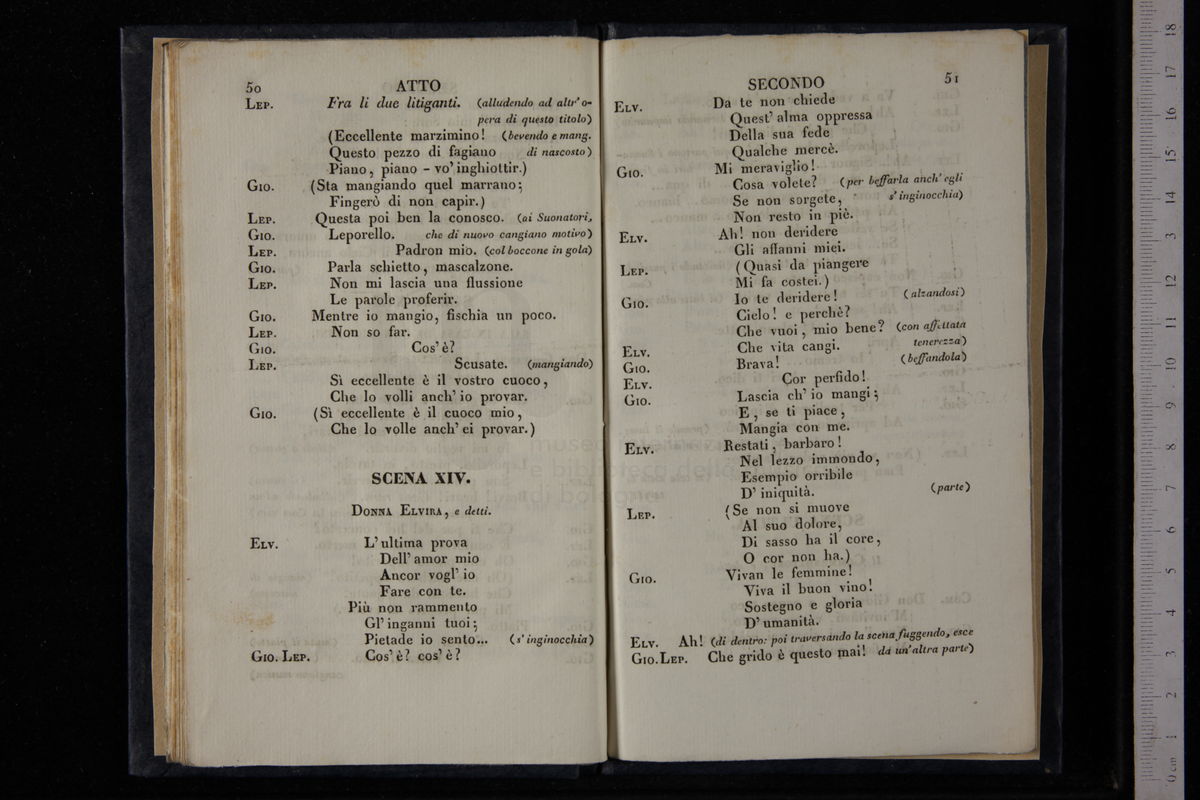 50 ATTO
LEP. Fra li due litiganti. (alludendo ad altr' o-
pera di questo titolo)
(Eccellente marzimino! (bevendo e mang.
Questo pezzo di fagiano di nascosto)
Piano, piano - vo' inghiottir.)
GIO. (Sta mangiando quel marrano;
Fingerò di non capir.)
LEP. Questa poi ben la conosco. (ai Suonatori,
GIO. Leporello. che di nuovo cangiano motivo)
LEP. Padron mio. (col boccone in gola)
GIO. Parla schietto, mascalzone.
LEP. Non mi lascia una flussione
Le parole proferir.
GIO. Mentre io mangio, fischia un poco.
LEP. Non so far.
GIO. Cos' è?
LEP. Scusate. (mangiando)
Sì eccellente è il vostro cuoco,
Che lo volli anch' io provar.
GIO. (Sì eccellente è il cuoco mio,
Che lo volle anch' ei provar.)
SCENA XIV.
DONNA ELVIRA, e detti.
ELV. L' ultima prova
Dell' amor mio
Ancor vogl' io
Fare con te.
Più non rammento
Gl' inganni tuoi;
Pietade io sento... (s' inginocchia)
GIO. LEP. Cos' è? cos' è?
SECONDO 51
ELV. Da te non chiede
Quest' alma oppressa
Della sua fede
Qualche mercè.
GIO. Mi meraviglio!
Cosa volete? (per beffarla anch' egli
Se non sorgete, s' inginocchia)
Non resto in piè.
ELV. Ah! non deridere
Gli affanni miei.
LEP. (Quasi da piangere
Mi fa costei.)
GIO. Io te deridere! (alzandosi)
Cielo! e perchè?
Che vuoi, mio bene? (con affettata
ELV. Che vita cangi. tenerezza)
GIO. Brava! (beffandola)
ELV. Cor perfido!
GIO. Lascia ch' io mangi;
E, se ti piace,
Mangia con me.
ELV. Restati, barbaro!
Nel lezzo immondo,
Esempio orribile
D' iniquità. (parte)
LEP. (Se non si muove
Al suo dolore,
Di sasso ha il core,
O cor non ha.)
GIO. Vivan le femmine!
Viva il buon vino!
Sostegno e gloria
D' umanità.
ELV. Ah! (di dentro: poi traversando la scena fuggendo, esce
GIO. LEP. Che grido è questo mai! da un' altra parte)
0 cm 1 2 3 4 5 6 7 8 9 10 11 12 13 14 15 16 17 18